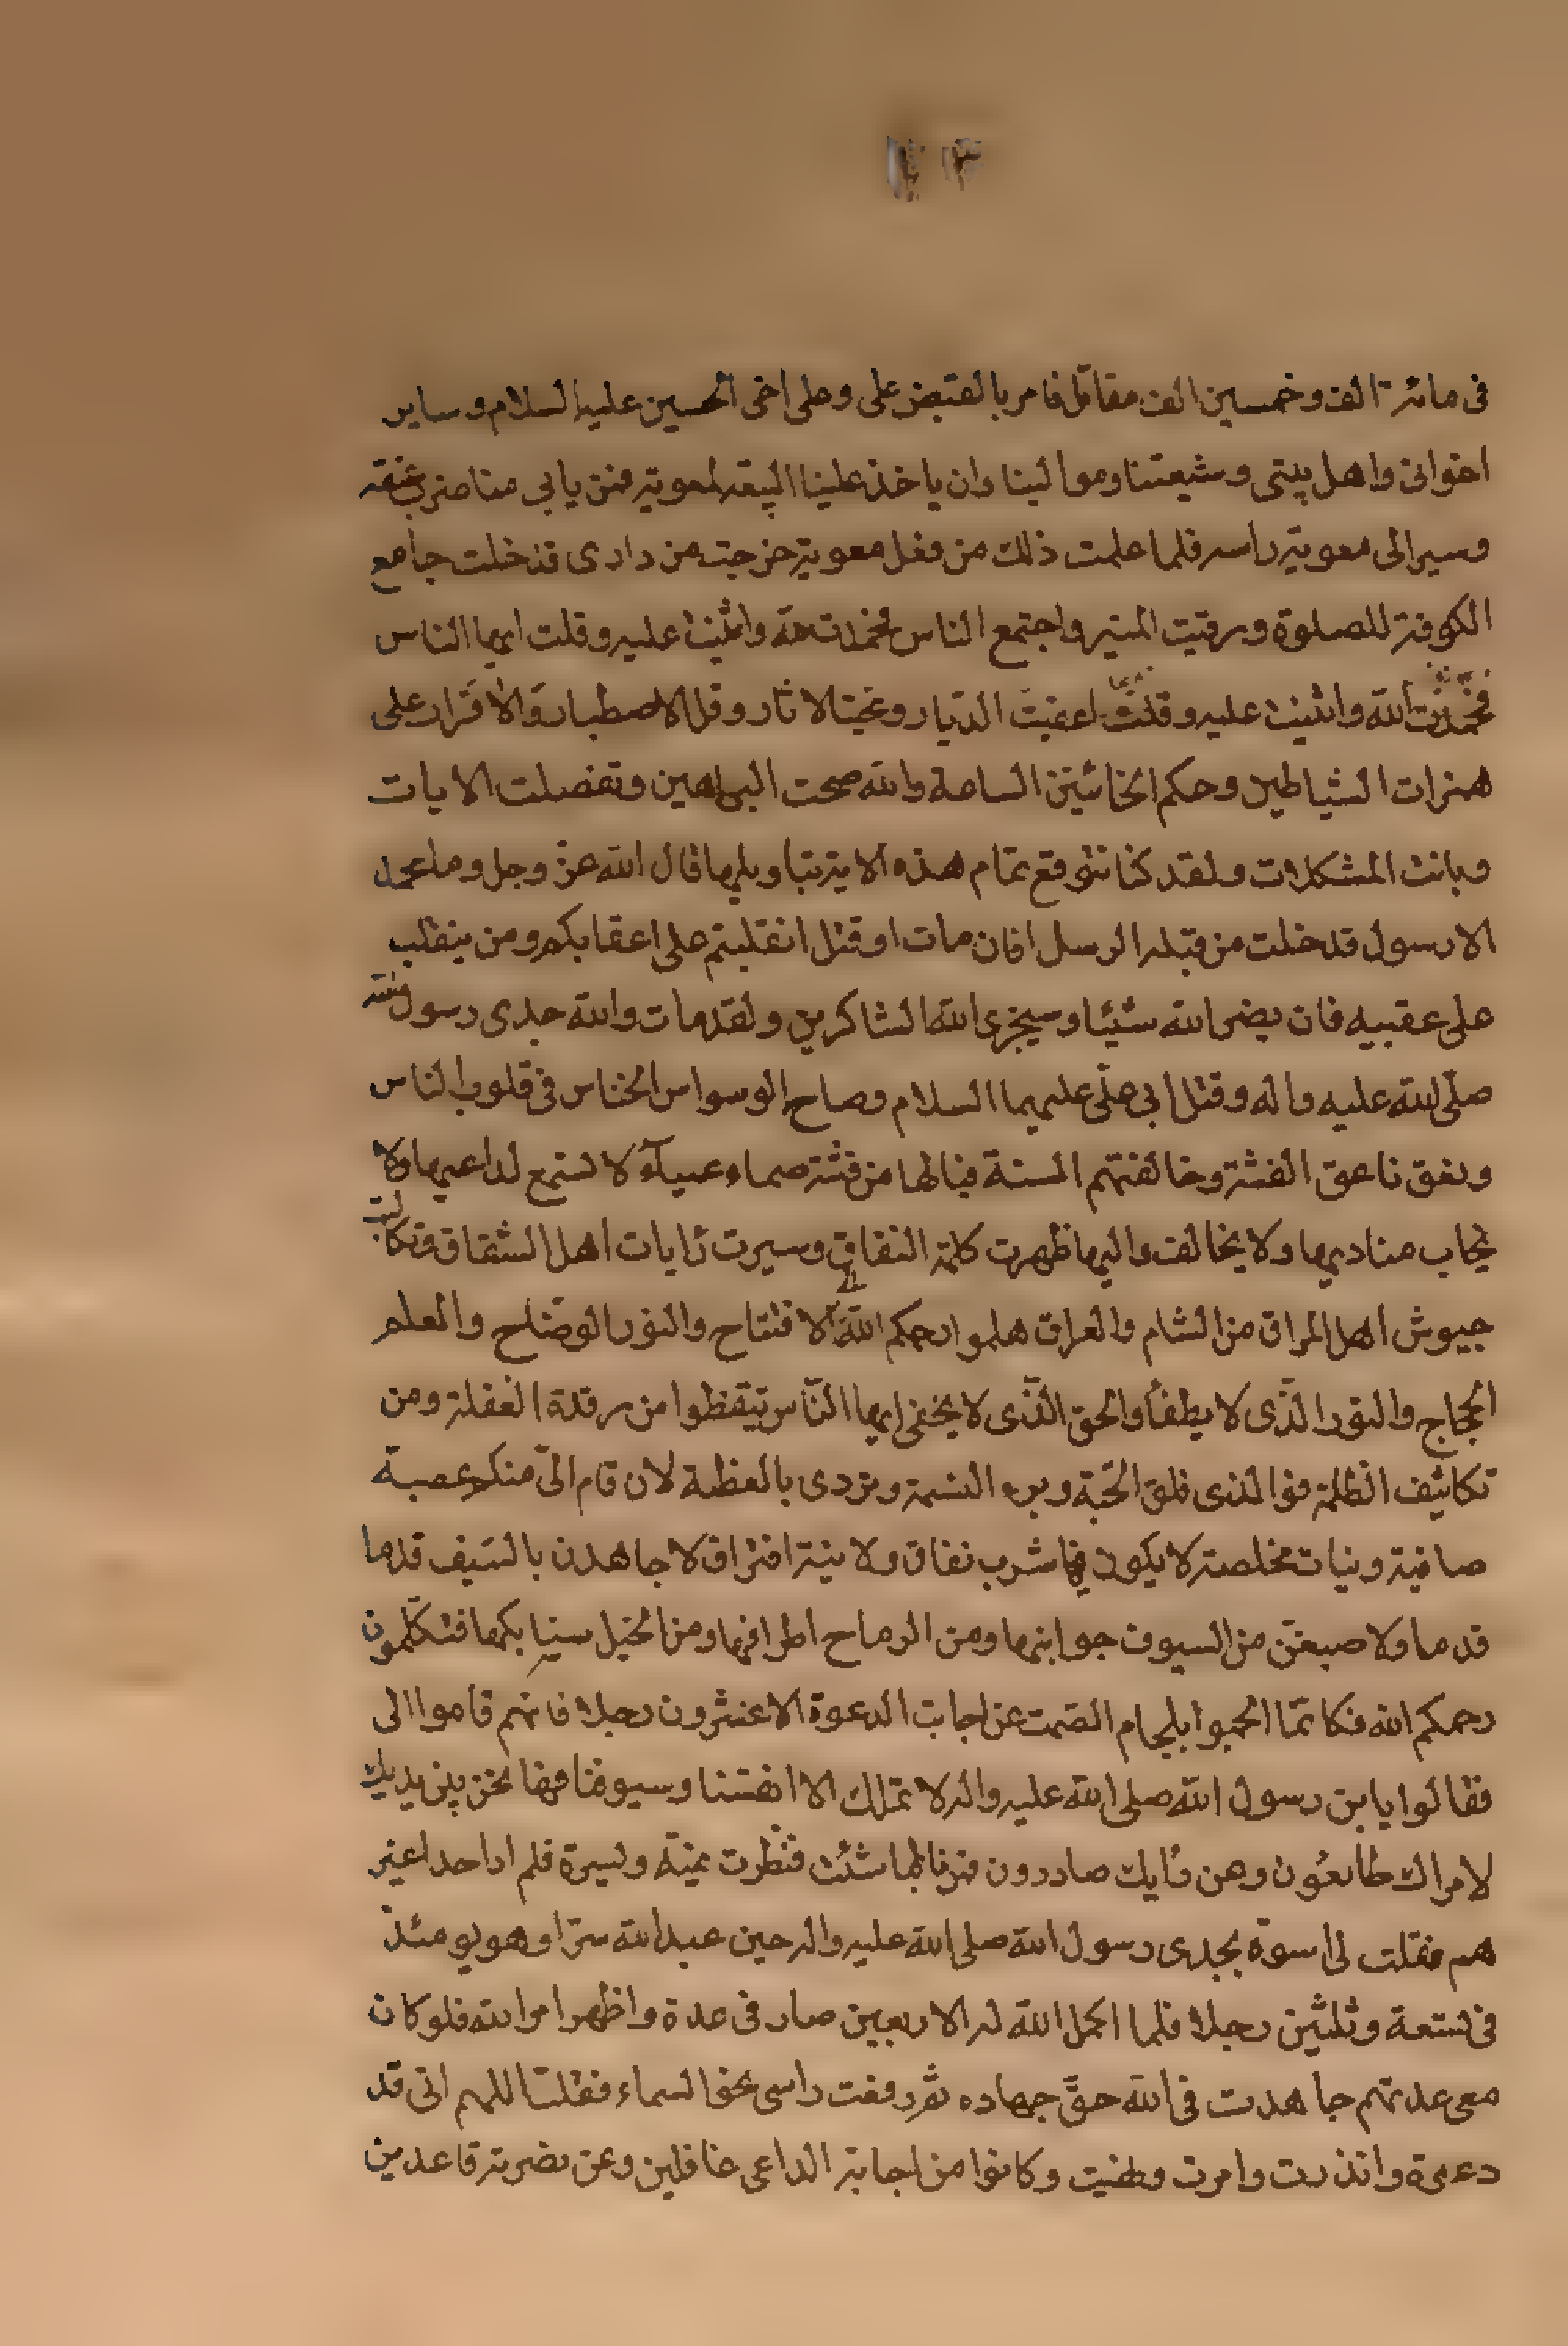 فى مائة الف وخمسين الف مقاتل فامر بالقبض على وعلى اخى الحسين عليه السلام وساير
اخوانى واهل بيتى وشيعتنا وموالينا وان ياخذ علينا البيعة لمعوية فمن يابى منا ضرب عنقه
وسير الى معوية راسه فلما علمت ذلك من فعل معوية خرجت من دارى فدخلت جامع
الكوفة للصلوة ورقيت المنبر واجتمع الناس فحمدت الله واثنيت عليه وقلت ايها الناس
فحمدت الله واثنيت عليه وقلت لعفيت الديار ومحيت الاثار وقل الاصطبار والاقرار على
همزات الشياطين وحكم الخائنين الساعة والله صحت البراهين وتفصلت الايات
وبانت المشكلات ولقد كنا نتوقع تمام هذه الاية بتاويلها قال الله عز وجل وما محمد
الا رسول قد خلت من قبله الرسل افان مات او قتل انقلبتم على اعقابكم ومن ينقلب
على عقبيه فلن يضر الله شيئا وسيجزى الله الشاكرين ولقد مات والله جدى رسول الله
صلى الله عليه واله وقتل ابى على عليهما السلام وصاح الوسواس الخناس فى قلوب الناس
ونعق ناعق الفتنة وخالفتهم السنة فيالها من فتنة صماء عمياء لا تسمع لداعيها ولا
يجاب مناديها ولا يخالف واليها ظهرت كلمة النفاق وسيرت رايات اهل الشقاق وتكالبت
جيوش اهل المراق من الشام والعراق هلموا رحمكم الله الى الافتتاح والنور الوضاح والعلم
الحجاج والنور الذى لا يطفأ والحق الذى لا يخفى ايها الناس تيقظوا من رقدة الغفلة ومن
تكاثيف الظلمة فوالذى فلق الحبة وبرء النسمة وتردى بالعظمة لان قام الى منكم عصبة
صافية ونيات مخلصة لا يكون فيها شرب نفاق ولا نية افتراق لاجاهدن بالسيف قدما
قدما ولاضيعن من السيوف جوانبها ومن الرماح اطرافها ومن الخيل سنابكها فتكلمون
رحمكم الله فكانما الجموا بلجام الصمت عن اجابة الدعوة الا عشرون رجلا فانهم قاموا الى
فقالوا يا بن رسول الله صلى الله عليه واله لا نملك الا انفسنا وسيوفنا فها نحن بين يديك
لامرك طائعون وعن رايك صادرون فمرنا بما شئت فنظرت يمنة ويسرة فلم ار احدا غير
هم فقلت لى اسوة بجدى رسول الله صلى الله عليه واله حين عبد الله سرا وهو يومئذ
فى تسعة وثلثين رجلا فلما اكمل الله له الاربعين صار فى عدة واظهر امر الله فلو كان
معى عدتهم جاهدت فى الله حق جهاده ثم رفعت راسى نحو السماء فقلت اللهم انى قد
دعوة وانذرت وامرت ونهيت وكانوا من اجابة الداعى غافلين وعن نصرته قاعدين